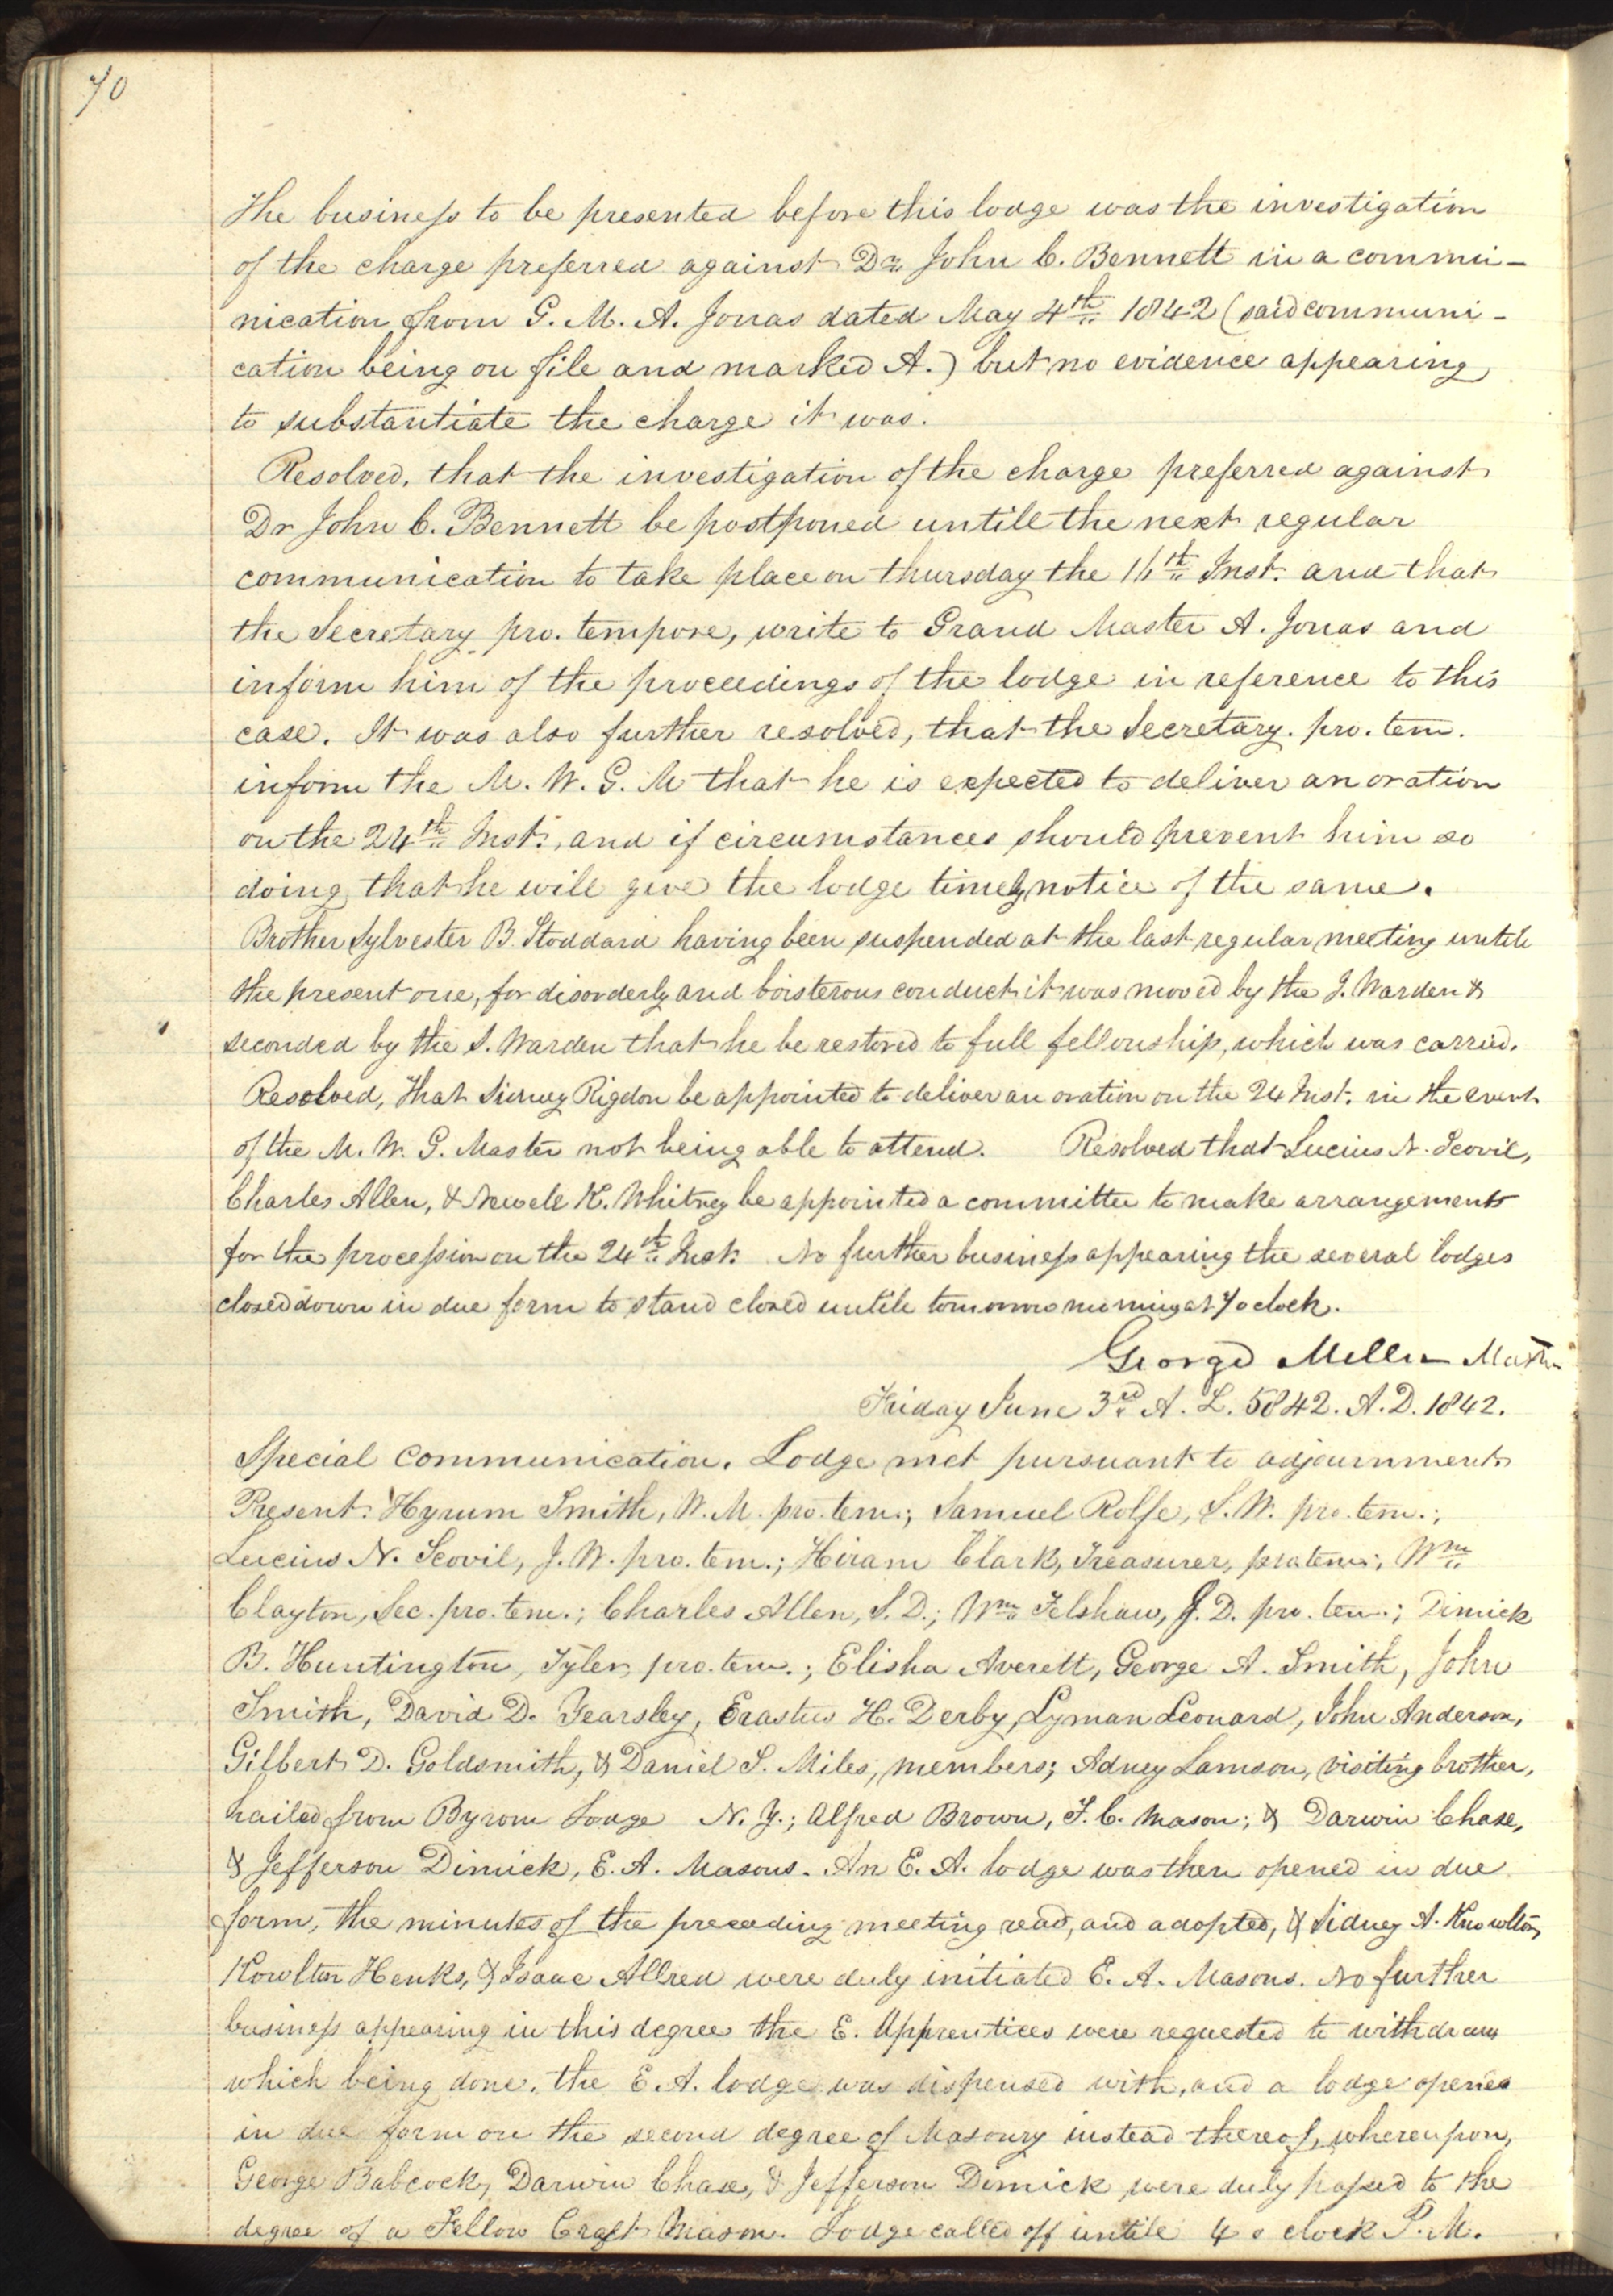 70
The business to be presented before this lodge was the investigation
of the charge preferred against Dr. John C. Bennett in a commu-
nication from G. M. A. Jonas dated May 4th 1842 (said communi-
cation being on file and marked A.) but no evidence appearing
to substantiate the charge it was.
Resolved, that the investigation of the charge preferred against
Dr John C. Bennett be postponed untill the next regular
communication to take place on thursday the 16th Inst. and that
the Secretary pro. tempore, write to Grand Master A. Jonas and
inform him of the proceedings of the lodge in reference to this
case. It was also further resolved, that the Secretary. pro. tem.
inform the M. W. G. M that he is expected to deliver an oration
on the 24th Inst., and if circumstances should prevent him so
doing that he will give the lodge timely notice of the same.
Brother Sylvester B. Stoddard having been suspended at the last regular meeting untill
the present one, for disorderly and boisterous conduct it was moved by the J. Warden &
seconded by the S. Warden that he be restored to full fellowship, which was carried.
Resolved, that Sidney Rigdon be appointed to deliver an oration on the 24 Inst. in the event
of the M. W. G. Master not being able to attend. Resolved that Lucius N. Scovil,
Charles Allen, & Newell K. Whitney be appointed a committee to make arrangements
for the procession on the 24th Inst. No further business appearing the several lodges
closed down in due form to stand closed untill tomorrow morning at 7 o clock.
George Miller Master
Friday June 3rd A. L. 5842. A. D. 1842.
Special communication. Lodge met pursuant to adjournment
Present: Hyrum Smith, W. M. pro. tem.; Samuel Rolfe, S. W. pro. tem.;
Lucius N. Scovil, J. W. pro. tem.; Hiram Clark, Treasurer, pro tem.; Wm
Clayton, Sec. pro. tem.; Charles Allen, S. D.; Wm Felshaw, J. D. pro. tem.; Dimick
B. Huntington, Tyler, pro. tem.; Elisha Averett, George A. Smith, John
Smith, David D. Yearsley, Erastus H. Derby, Lyman Leonard, John Anderson,
Gilbert D. Goldsmith, & Daniel S. Miles, members; Adney Lamson, visiting brother,
hailed from Byrom Lodge N. Y.; Alfred Brown, F. C. Mason; & Darwin Chase,
& Jefferson Dimick, E. A. Masons. An E. A. lodge was then opened in due
form, the minutes of the preceeding meeting read, and adopted, & Sidney A. Knowlton,
Kowlton Henks, & Isaac Allred were duly initiated E. A. Masons. No further
business appearing in this degree the E. Apprentices were requested to withdraw
which being done, the E. A. lodge was dispensed with, and a lodge opened
in due form on the second degree of Masonry instead thereof, whereupon,
George Babcock, Darwin Chase, & Jefferson Dimick were duly passed to the
degree of a Fellow Craft Mason. Lodge called off untill 4 o clock P. M.